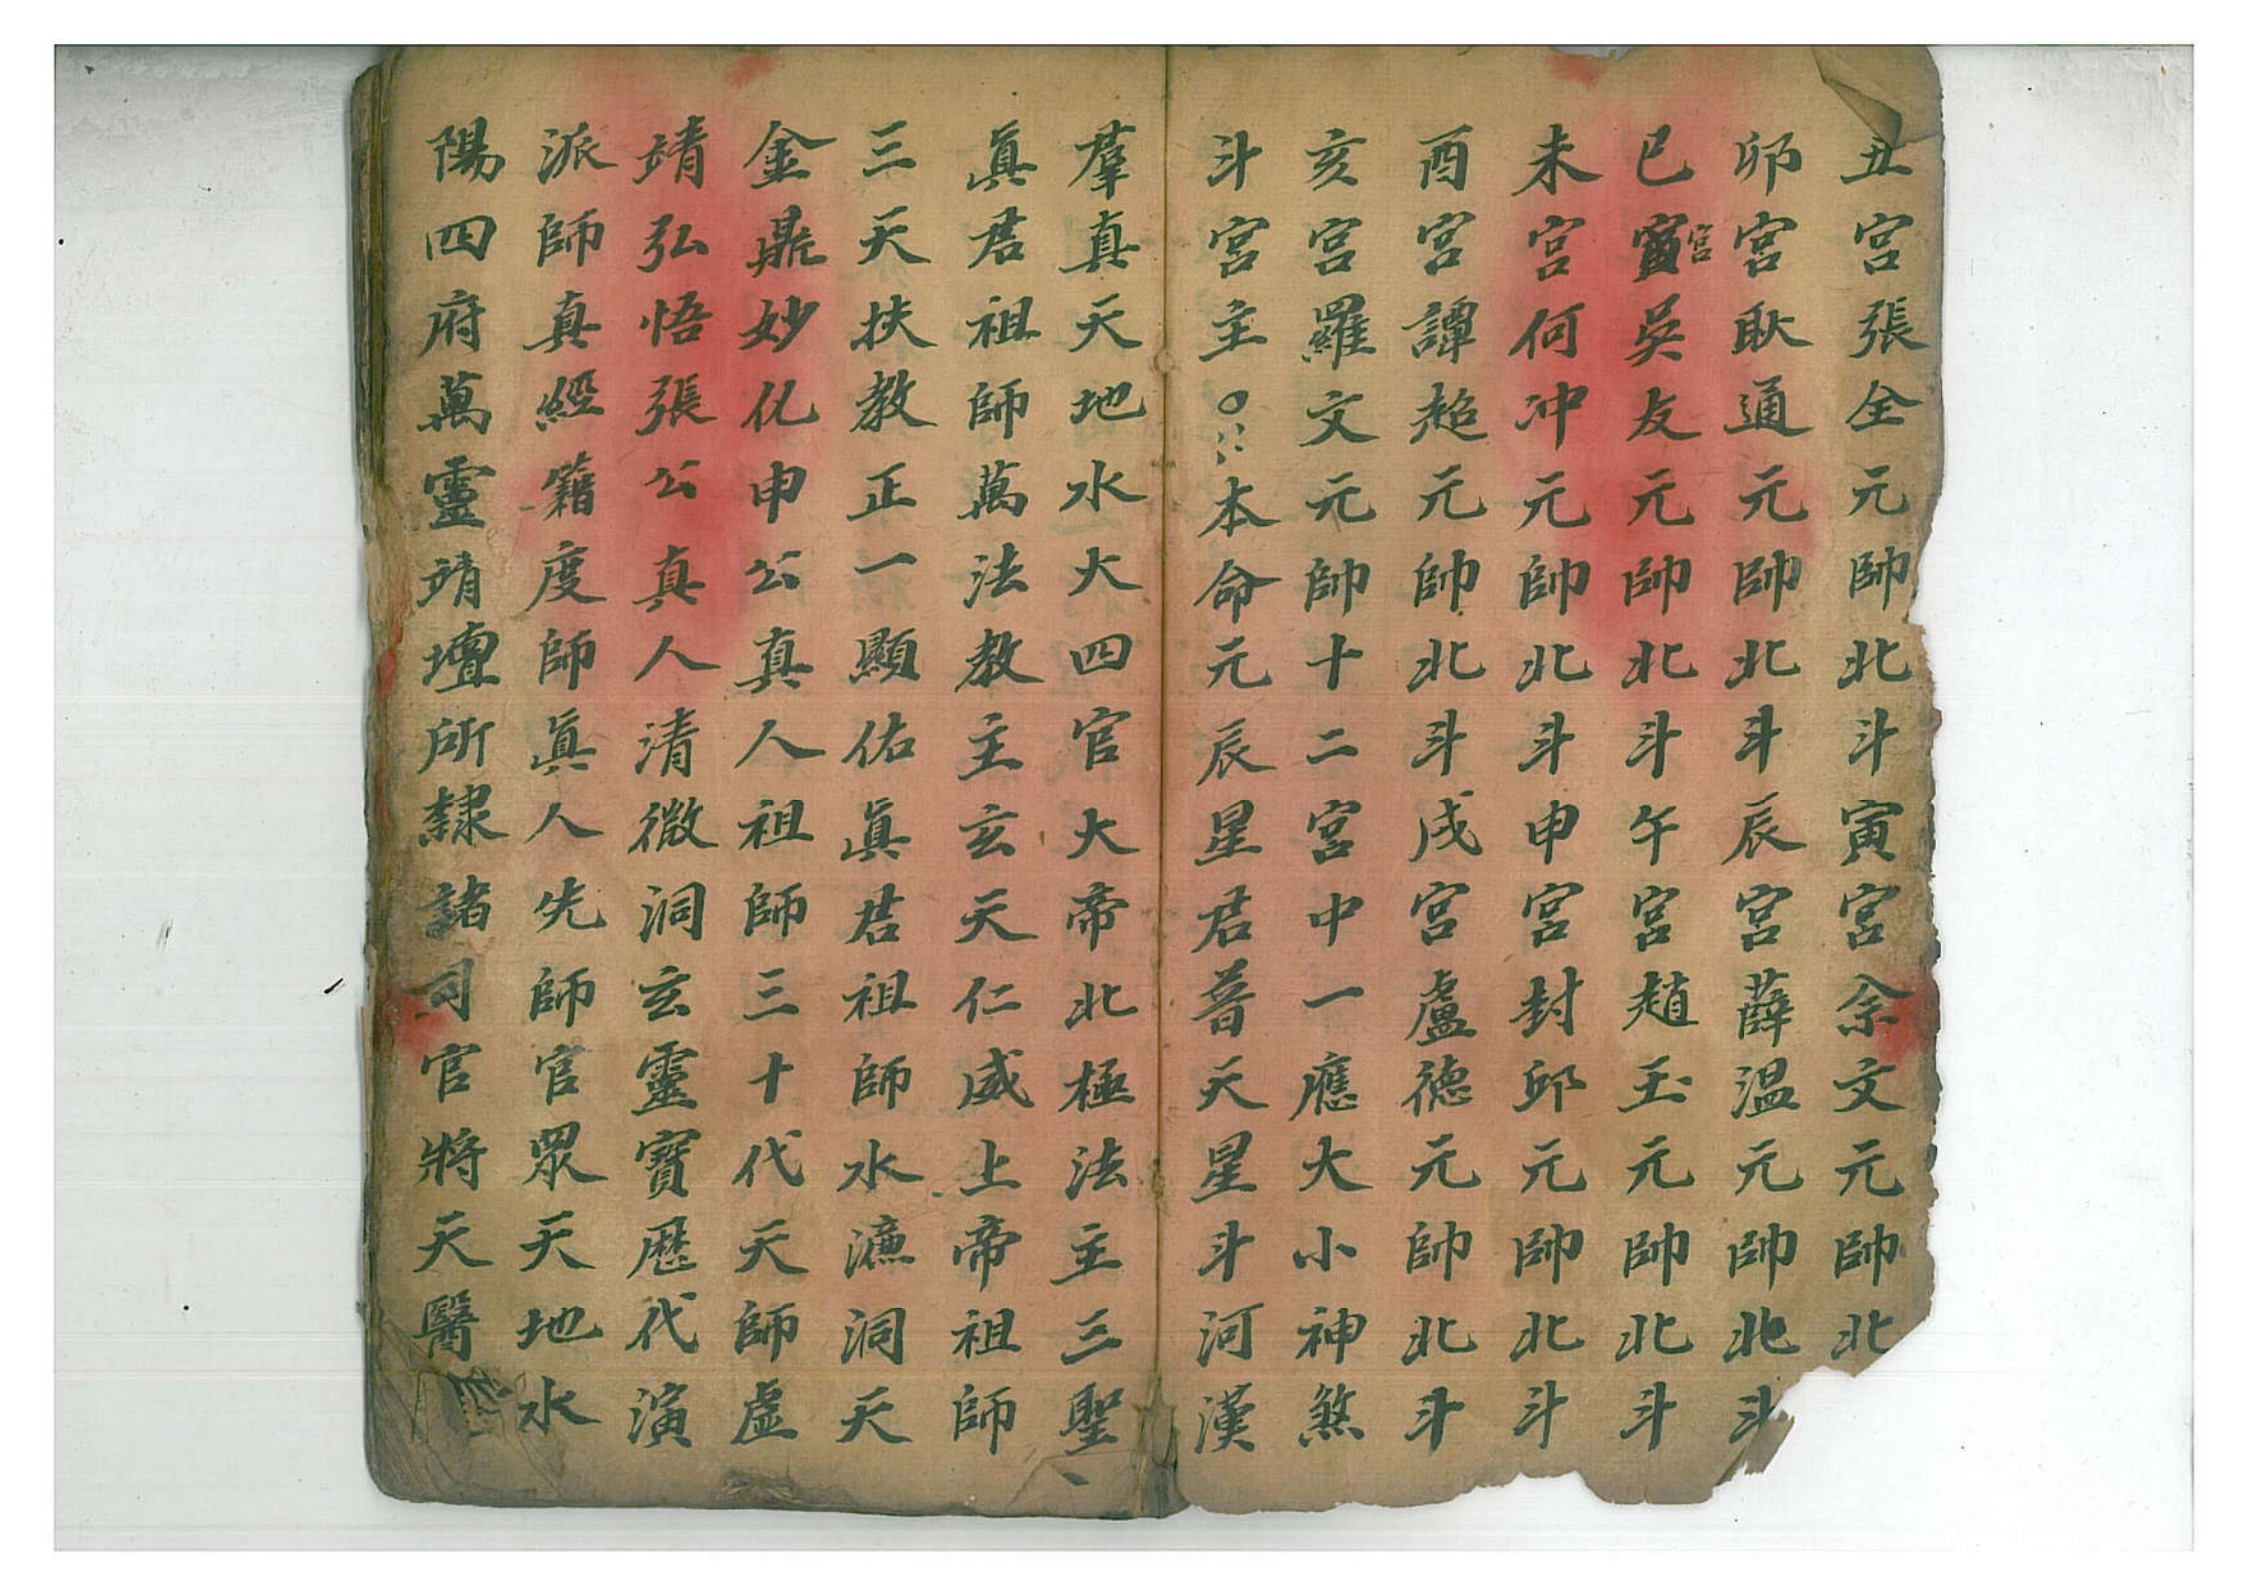 丑宮張全元帥北斗寅宮余文元帥北
卯宮耿通元帥北斗辰宮薛温元帥北斗
巳宮吳友元帥北斗午宮趙玉元帥北斗
未宮何冲元帥北斗申宮封邱元帥北斗
酉宮譚超元帥北斗戌宮盧德元帥北斗
亥宮羅文元帥十二宮中一應大小神煞
斗宮主本命元辰星君普天星斗河漢
羣真天地水大四官大帝北極法主三聖
眞君祖師萬法教主玄天仁威上帝祖師
三天扶教正一顯佑眞君祖師水濂洞天
金鼎妙化申公真人祖師三十代天師虛
靖弘悟張公真人清微洞玄靈寶歷代演
派師真經籍度師眞人先師官眾天地水
陽四府萬靈靖壇所隸諸司官將天醫